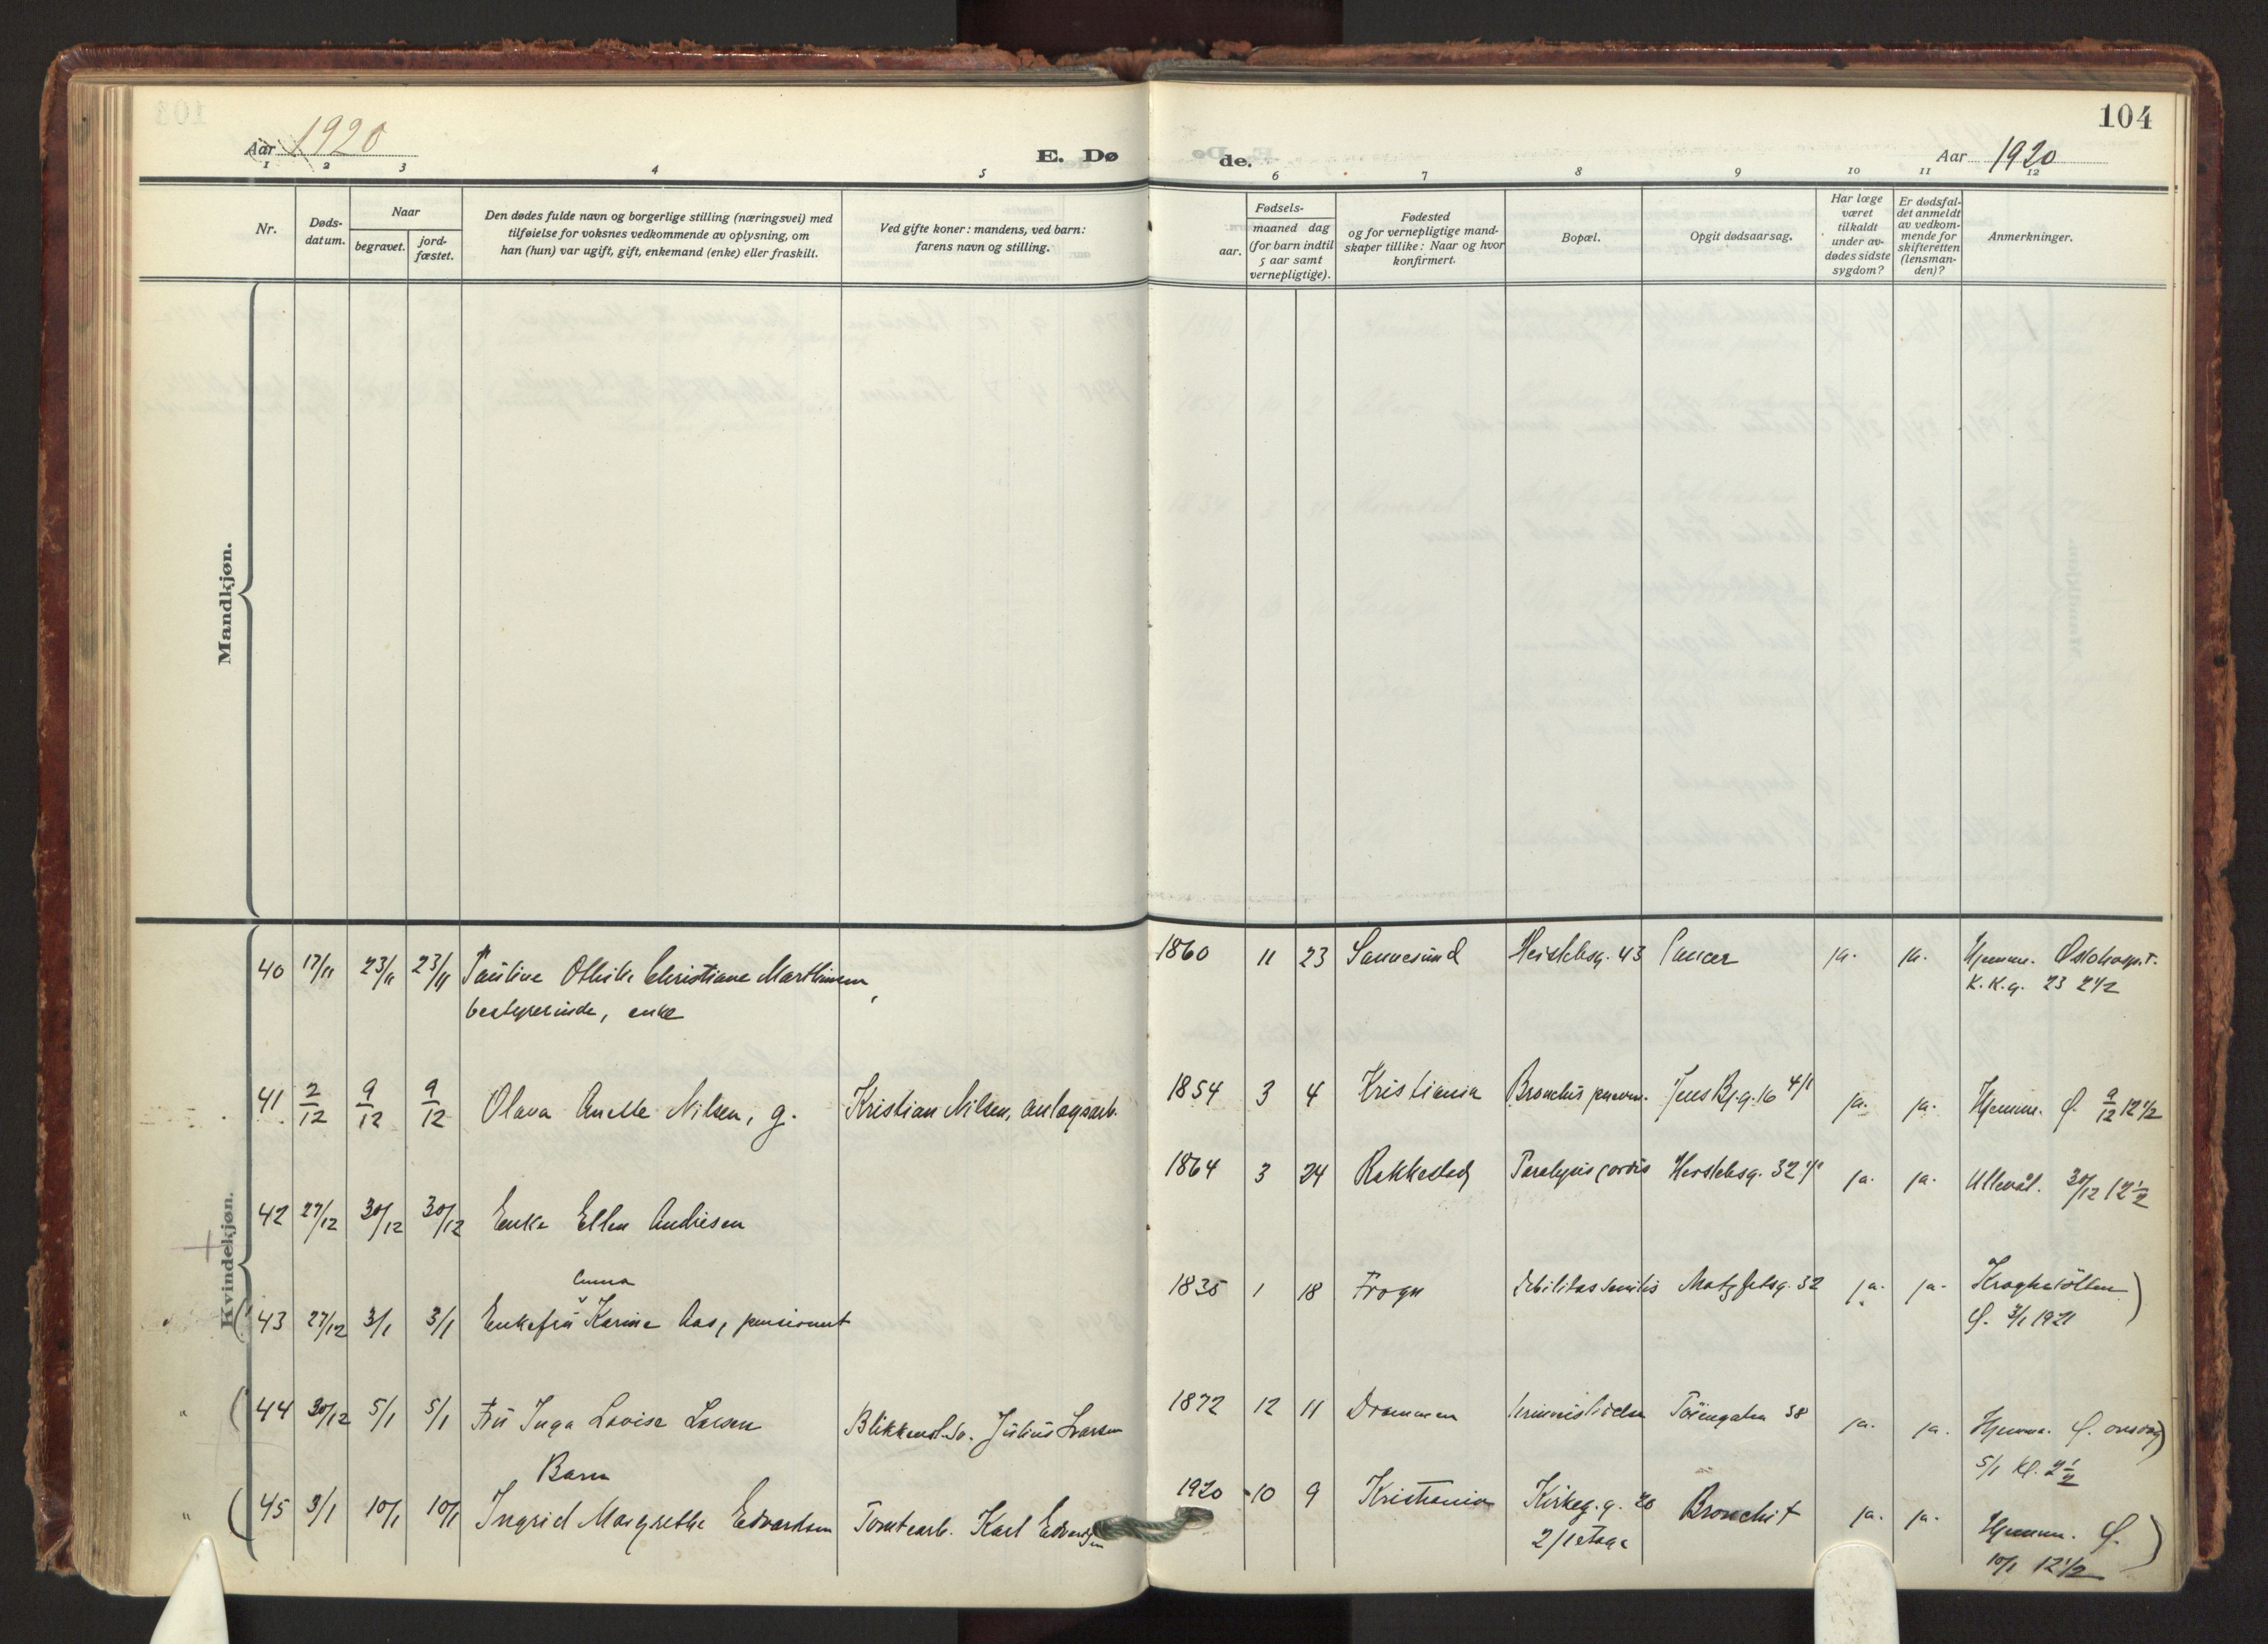 104
Aar 1920
E. Dø
de.
Aar 1920
1 2 3 4 5 6 7 8 9 10 11 12
Nr.
Døds-
datum.
Naar
begravet.
jord-
fæstet.
Den dødes fulde navn og borgerlige stilling (næringsvei) med
tilføielse for voksnes vedkommende av oplysning, om
han (hun) var ugift, gift, enkemand (enke) eller fraskilt.
Ved gifte koner: mandens, ved barn:
farens navn og stilling.
Fødsels-
aar.
maaned dag
(for barn indtil
5 aar samt
vernepligtige).
Fødested
og for vernepligtige mand-
skaper tillike: Naar og hvor
konfirmert.
Bopæl.
Opgit dødsaarsag.
Har læge
været
tilkaldt
under av-
dødes sidste
sygdom?
Er dødsfal-
det anmeldt
av vedkom-
mende for
skifteretten
(lensman-
den)?
Anmerkninger.
Mandkjøn.
Kvindekjøn.
40 17/11 23/11 23/11 Pauline Othilie Christiane Marthinsen, 1860 11 23 Sannesund 43 Cancer ja. ja. Hjemme.
bestyrerinde, enke K.K.g. 23 2 1/2
41 2/12 9/12 9/12 Olava Anette Nilsen, g. Kristian Nilsen, anlagsarb. 1854 3 4 Kristiania Jens Bj.g. 16 4/1 ja. ja. Hjemme. 9/12 12 1/2
42 27/12 30/12 30/12 Enke Ellen Andresen 1864 3 24 Rakkestad Paralysis cordis Herslebsg. 32 ja. ja. Ullevål. 30/12 12 1/2
Emma
(43 27/12 3/1 3/1 Enkefru Karine Aas, pensionert 1835 1 18 Frogn debilitas senilis Motzfeltsg. 32 ja. ja.
3/1 1921)
(44 30/12 5/1 5/1 Fru Inga Lovise Larsen Julius Larsen 1872 12 11 Drammen Töiengaten 38 ja. ja. Hjemme. onsdag)
5/1 Kl. 2 1/2
Barn
(45 3/1 10/1 10/1 Ingrid Margrethe Edvardsen Tomtearb. Karl Edvardsen 1920 10 9 Kristiania Kirkeg.g. 20 Bronchit ja. ja. Hjemme.
2/1 etage 10/1 12 1/2)